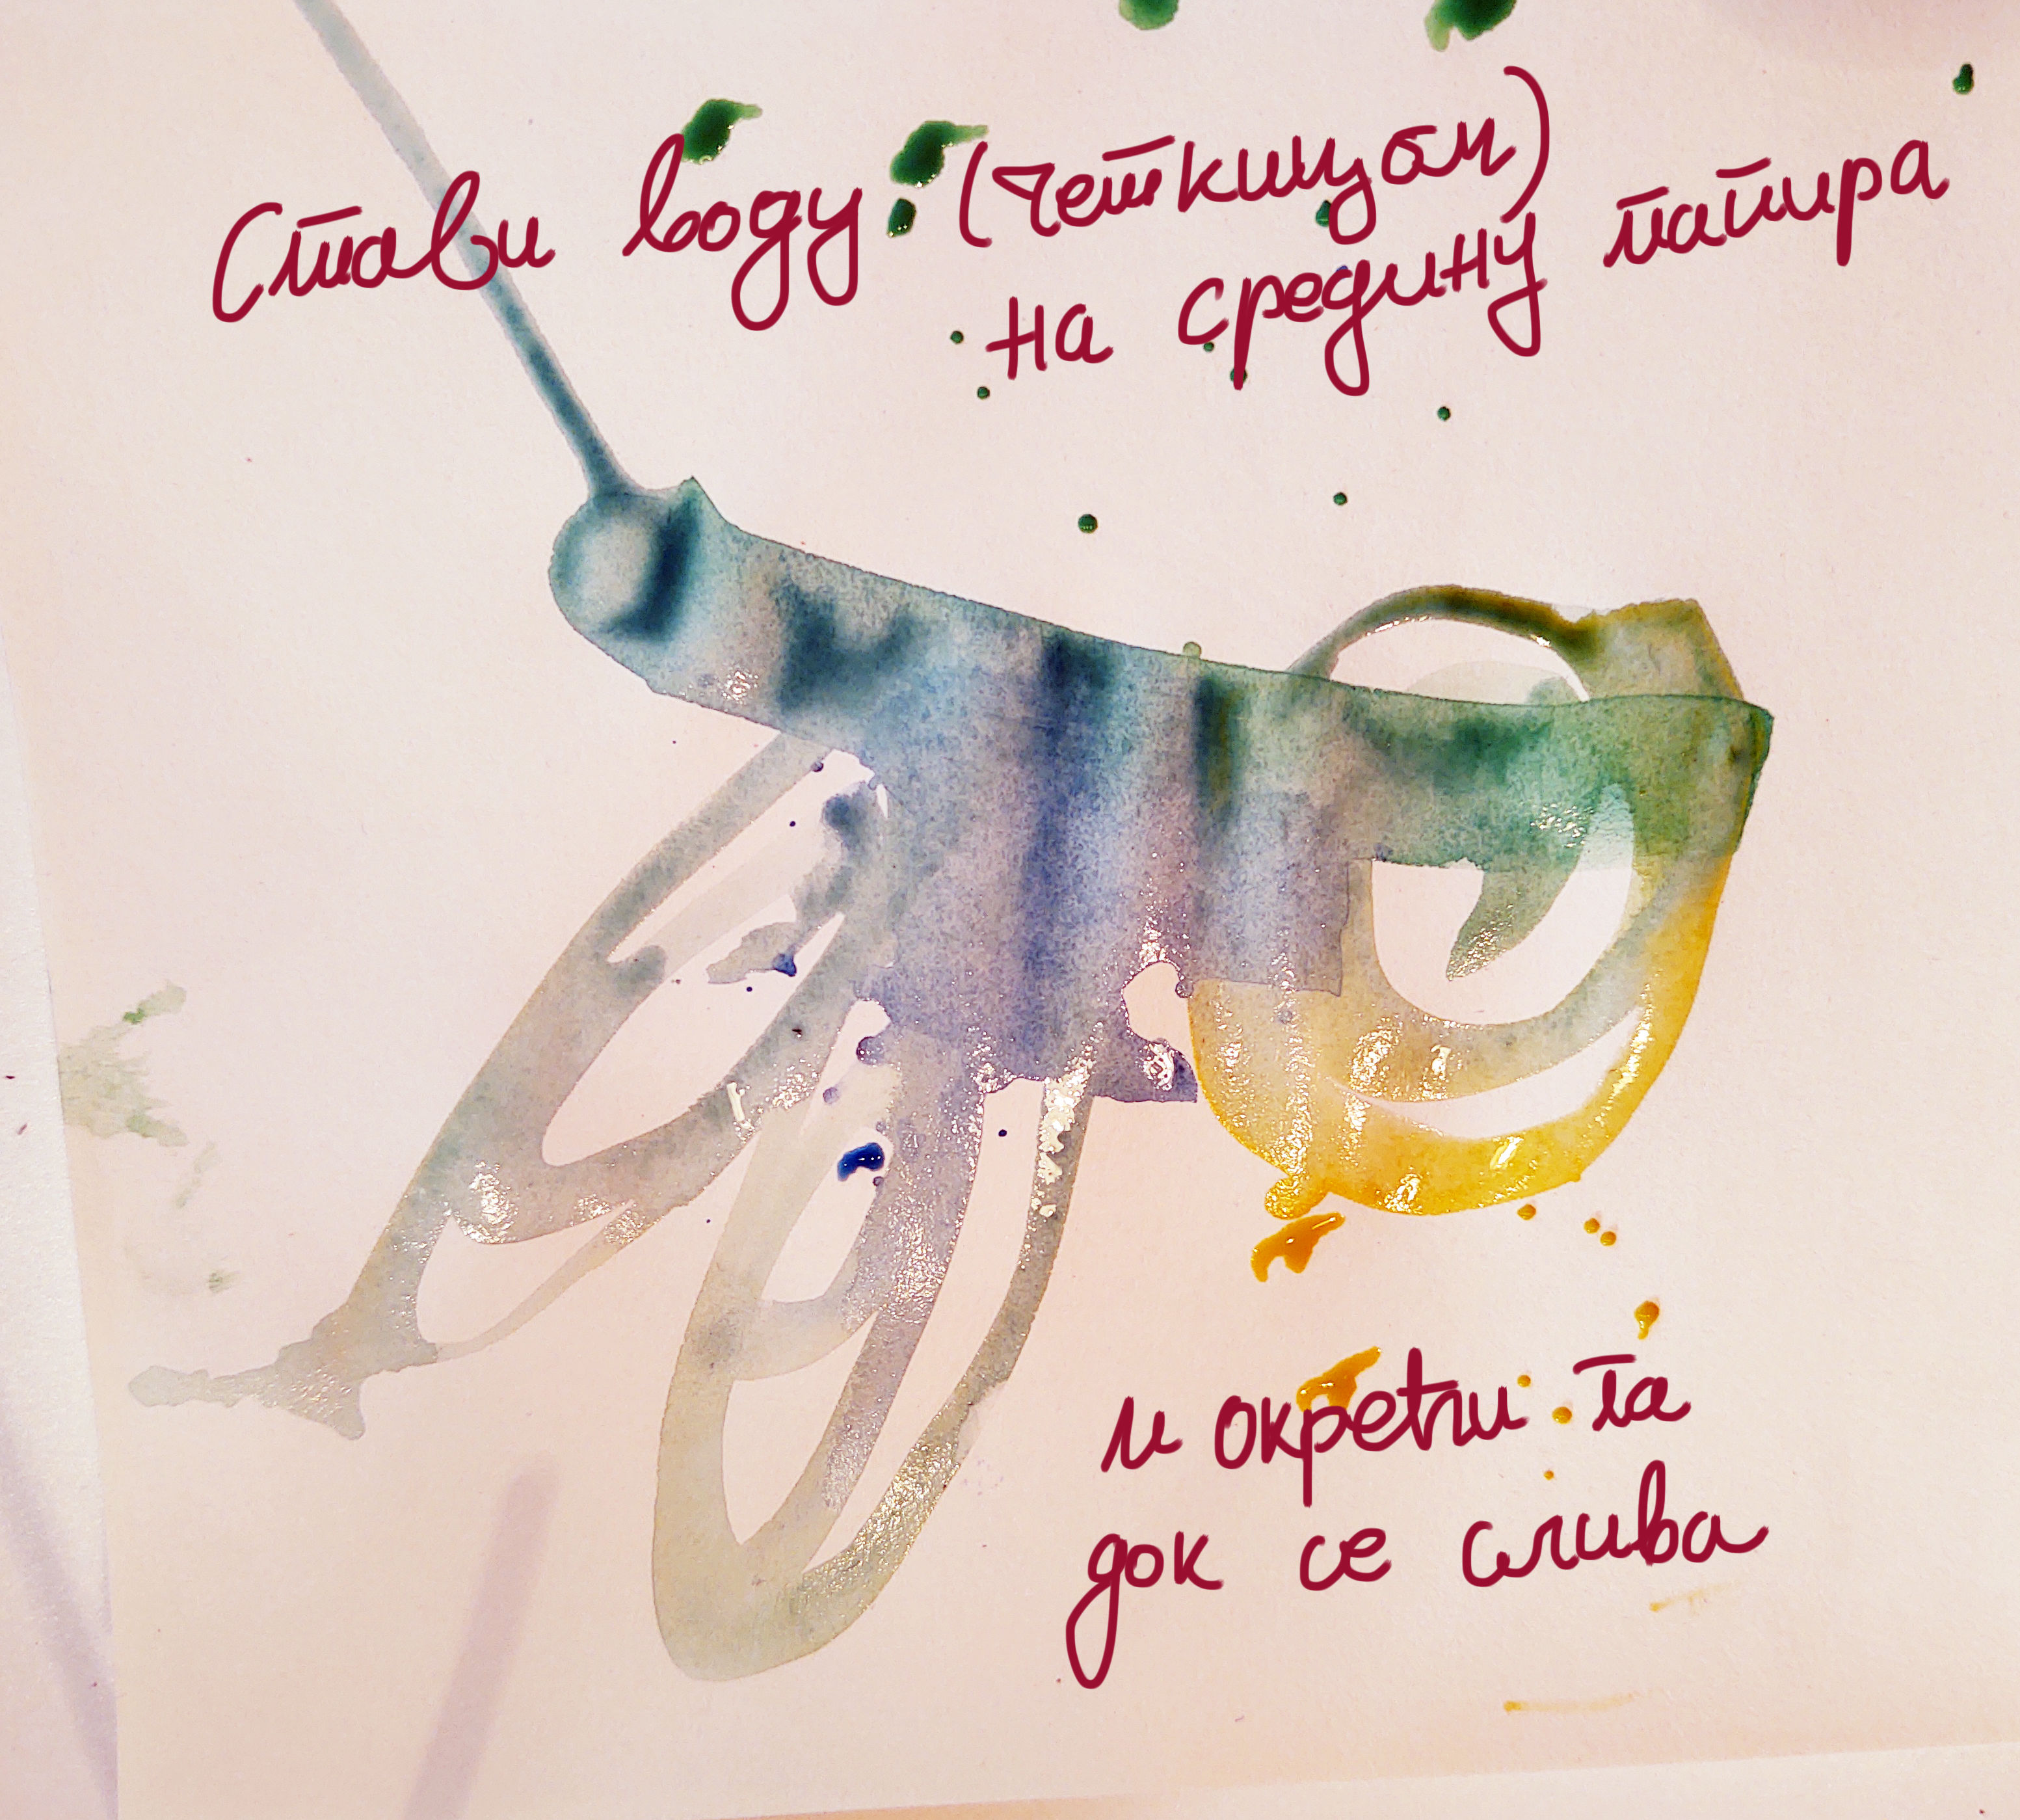 Стави воду (четкицом)
на средину папира
и окрећи га
док се слива